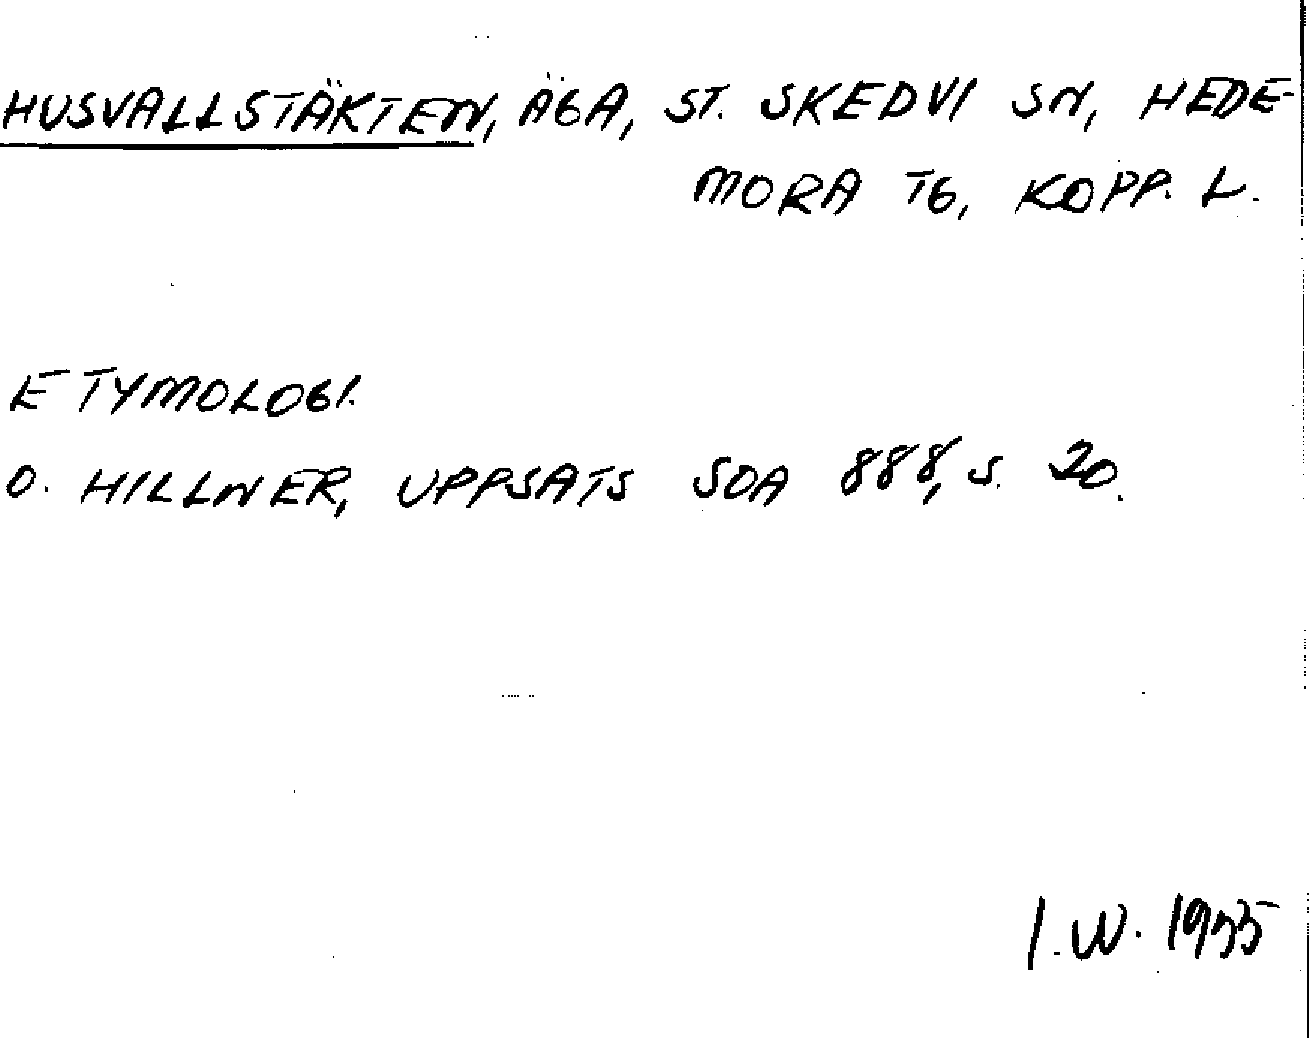 HUSVALLSTÄKTEN, ÄGA, ST. SKEDVI SN, HEDE-
MORA TG, KOPP. L.
ETYMOLOGI.
O. HILLNER, UPPSATS SOA 888, S. 20.
I.W. 1955